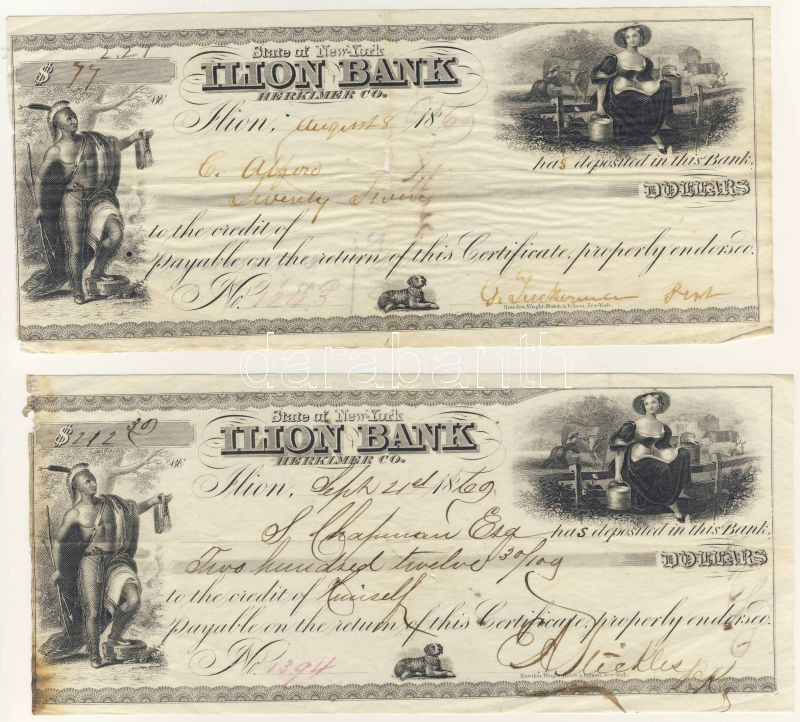 $ 77
State of New-York
ILION BANK
HERKIMER CO.
Ilion, August 8 1869
C. Alford
has deposited in this Bank,
Seventy Seven DOLLARS
to the credit of
payable on the return of this Certificate, properly endorsed.
No.
Rawdon, Wright, Hatch & Edson, New-York.
darabanth
$ 212 30
State of New-York
ILION BANK
HERKIMER CO.
Ilion, Sept 21st 1869
S Chapman Esq has deposited in this Bank,
Two hundred twelve 30/100 DOLLARS
to the credit of himself
payable on the return of this Certificate, properly endorsed.
No. 1394
Rawdon, Wright, Hatch & Edson, New-York.